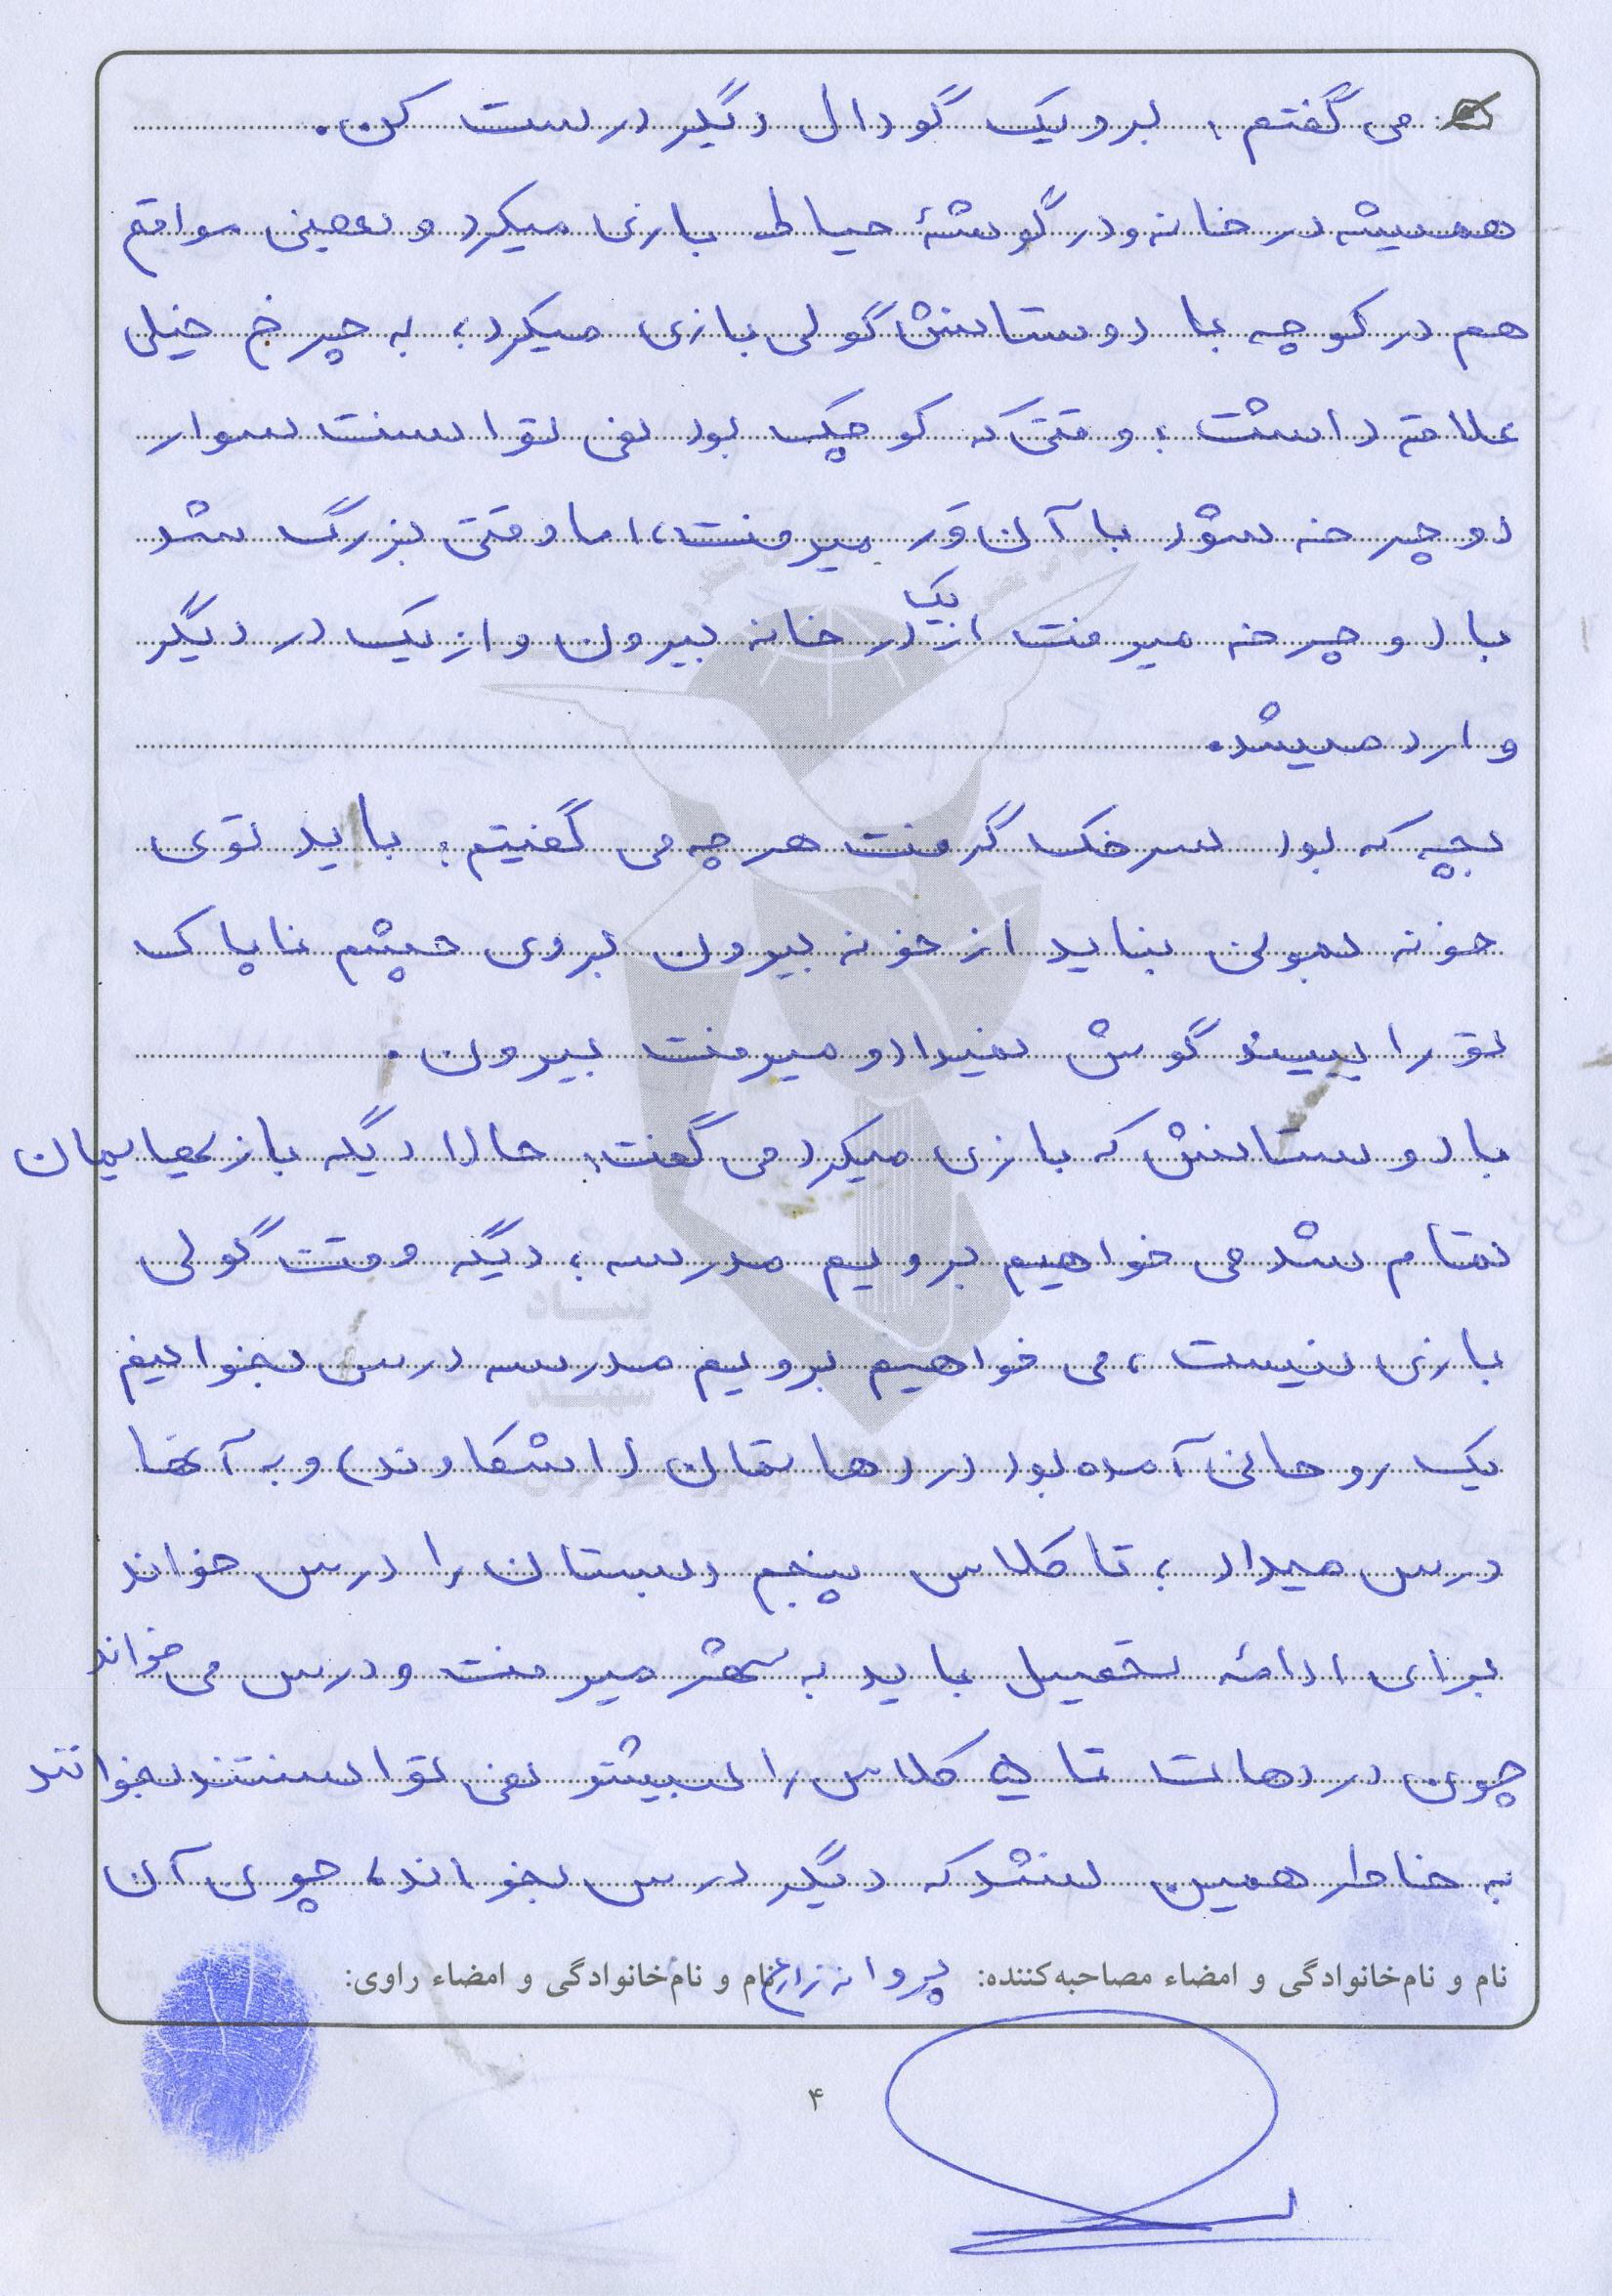 می گفتم: برو یک گودال دیگر درست کن.
همیشه در خانه و در گوشهٔ حیاط بازی میکرد و بعضی مواقع
هم در کوچه با دوستانش گولی بازی میکرد؛ به چرخ خیلی
علاقه داشت؛ وقتی که کوچک بود نمی توانست سوار
دوچرخه شود با آن ور میرفت، اما وقتی بزرگ شد
با دوچرخه میرفت از یک در خانه بیرون و از یک در دیگر
وارد میشد.
بچه که بود سرخک گرفت هر چه می گفتیم: باید توی
خونه بمونی نباید از خونه بیرون بروی چشم ناپاک
تو را ببیند گوش نمیداد و میرفت بیرون.
با دوستانش که بازی میکرد می گفت: حالا دیگه بازیهایمان
تمام شد می خواهیم برویم مدرسه؛ دیگه وقت گولی
بازی نیست، می خواهیم برویم مدرسه درس بخوانیم
یک روحانی آمده بود در دهاتمان (اشکاوند) و به آنها
درس میداد؛ تا کلاس پنجم دبستان را درس خواند
برای ادامه تحصیل باید به شهر میرفت و درس می خواند
چون در دهات تا ۵ کلاس را بیشتر نمی توانستند بخوانند
به خاطر همین نشد که دیگر درس بخواند، چون آن
نام و نام‌خانوادگی و امضاء مصاحبه‌کننده: پروانه زارع نام و نام‌خانوادگی و امضاء راوی:
۴
بنیاد
شهید